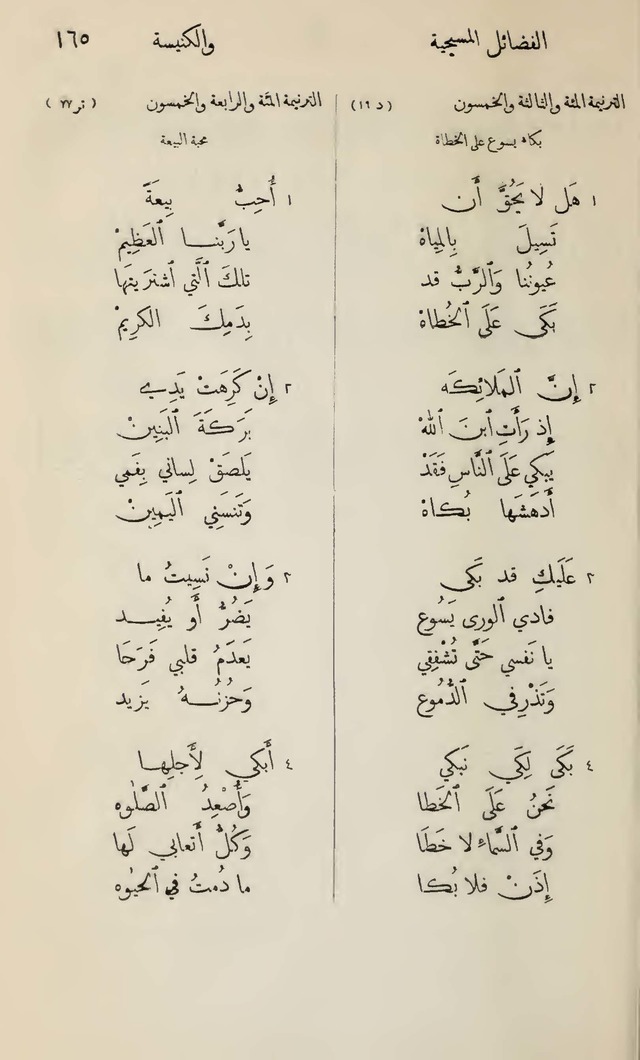 الفضائل المسيحية والكنيسة ١٦٥
الترنيمة المئة والثالثة والخمسون (د ١٦)
بكاء يسوع على الخطاة
١ هَل لا يَحُقَّ أَن
تَسِيلَ بِالمِياهْ
عُيونُنا وَٱلرَّبُّ قد
بَكَى عَلَى ٱلخُطاهْ
٢ إِنَّ ٱلمَلائِكَه
إِذ رَأَتِ ٱبنَ ٱللهْ
يَبكِي عَلَى ٱلنَّاسِ فَقَدْ
أَدهَشَها بُكاهْ
٣ عَلَيكِ قد بَكَى
فادي ٱلورى يَسُوع
يا نَفسي حَتَّى تُشْفِقِي
وَتَذْرِفي ٱلدُّمُوع
٤ بَكَى لِكَي نَبكي
نَحنُ عَلَى ٱلخَطا
وَفي ٱلسَّماءِ لا خَطَا
إِذَنْ فلا بُكا
الترنيمة المئة والرابعة والخمسون (تر ٧٧)
محبة البيعة
١ أُحِبُّ بِيعَةً
يا رَبَّنا ٱلعَظِيمْ
تلكَ ٱلَّتي ٱشتَرَيتَها
بِدَمِكَ الكرِيمْ
٢ إِنْ كَرِهَتْ يَدِي
بَرَكَةَ ٱلبَنِينْ
يَلصَقْ لِساني بِفَمي
وَتَنسَنِي ٱليَمِينْ
٣ وَإِنْ نَسِيتُ ما
يَضُرُّ أَو يُفِيد
يَعدَمُ قلبي فَرَحَا
وَحُزنُهُ يَزيد
٤ أَبكي لِأَجلِها
وَأُصْعِدُ ٱلصَّلٰوه
وَكُلُّ أَتعابي لَها
ما دُمتُ في ٱلحَيٰوه